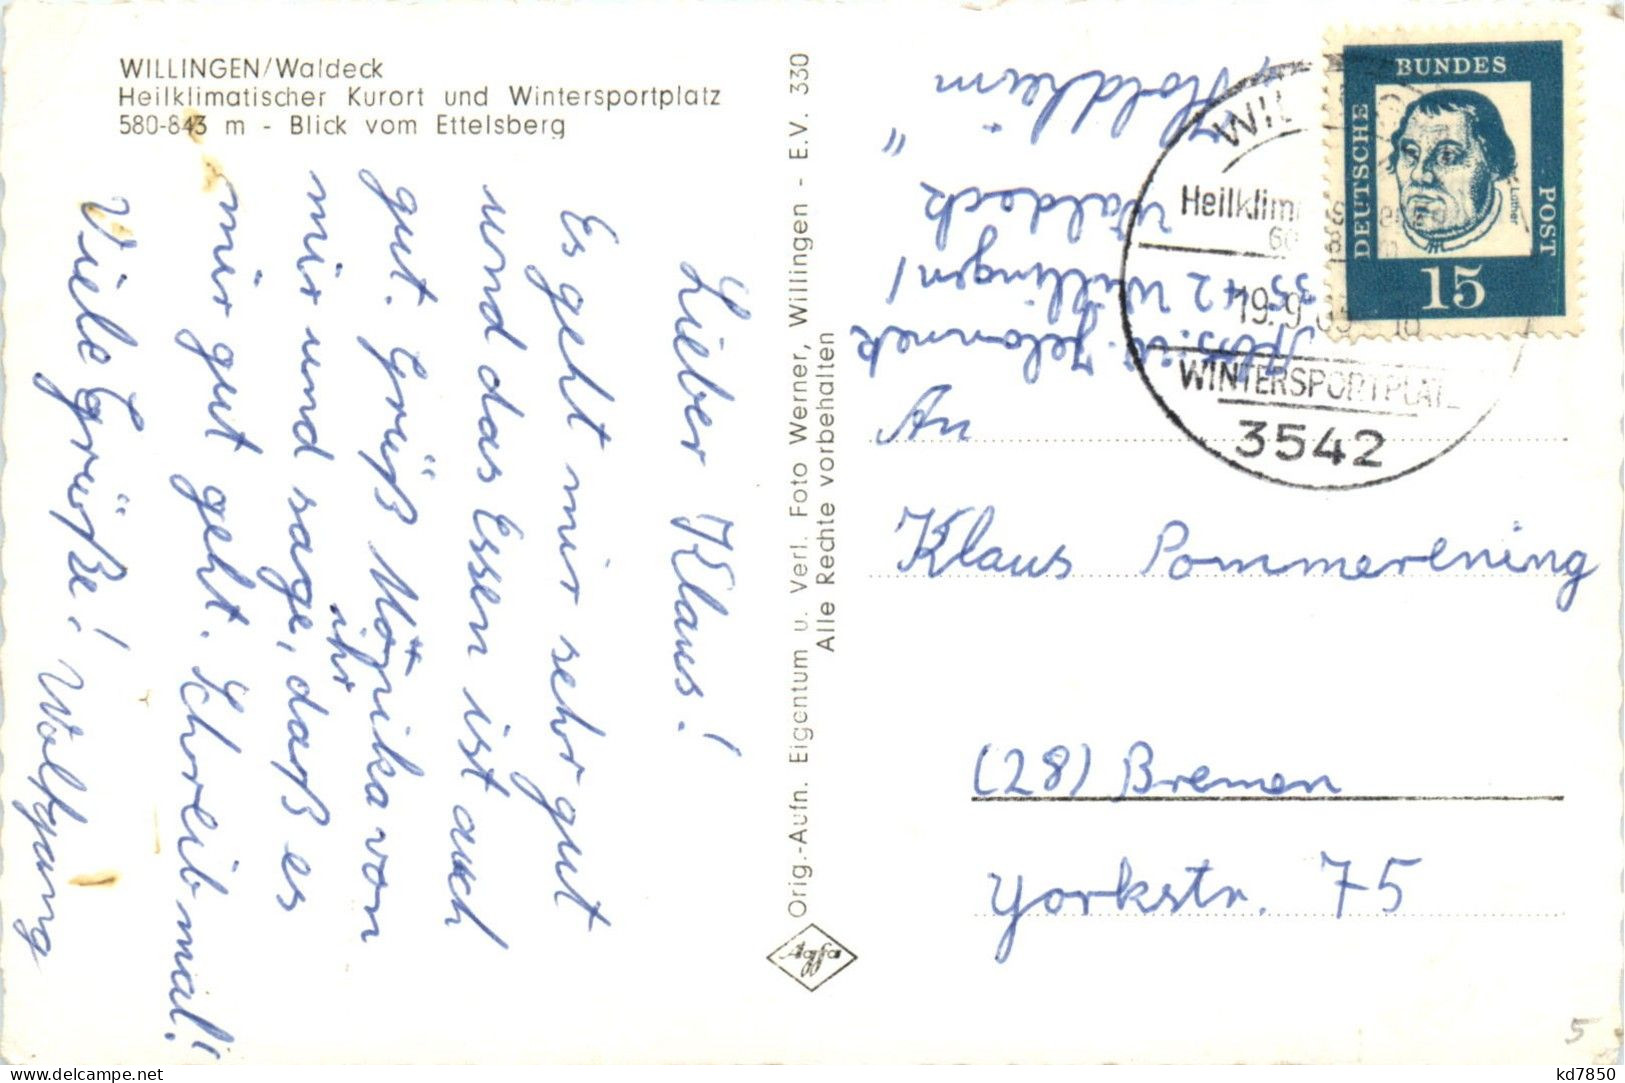 WILLINGEN/Waldeck
Heilklimatischer Kurort und Wintersportplatz
580-843 m - Blick vom Ettelsberg
Lieber Klaus!
Es geht mir sehr gut
und das Essen ist auch
gut. Grüß Monika von
mir und sage, daß es
ihr
mir gut geht. Schreib mal!
Viele Grüße! Wolfgang
Orig.-Aufn. Eigentum u. Verl. Foto Werner, Willingen - E.V. 330
Alle Rechte vorbehalten
Agfa
Abs.: W. Jelonnek
3542 Willingen/
Waldeck
" Holdheim
BUNDES
DEUTSCHE
POST
Luther
15
Heilklim
19.9.65
WINTERSPORTPLATZ
3542
An
Klaus Pommerening
(28) Bremen
Yorkstr. 75
5
kd7850